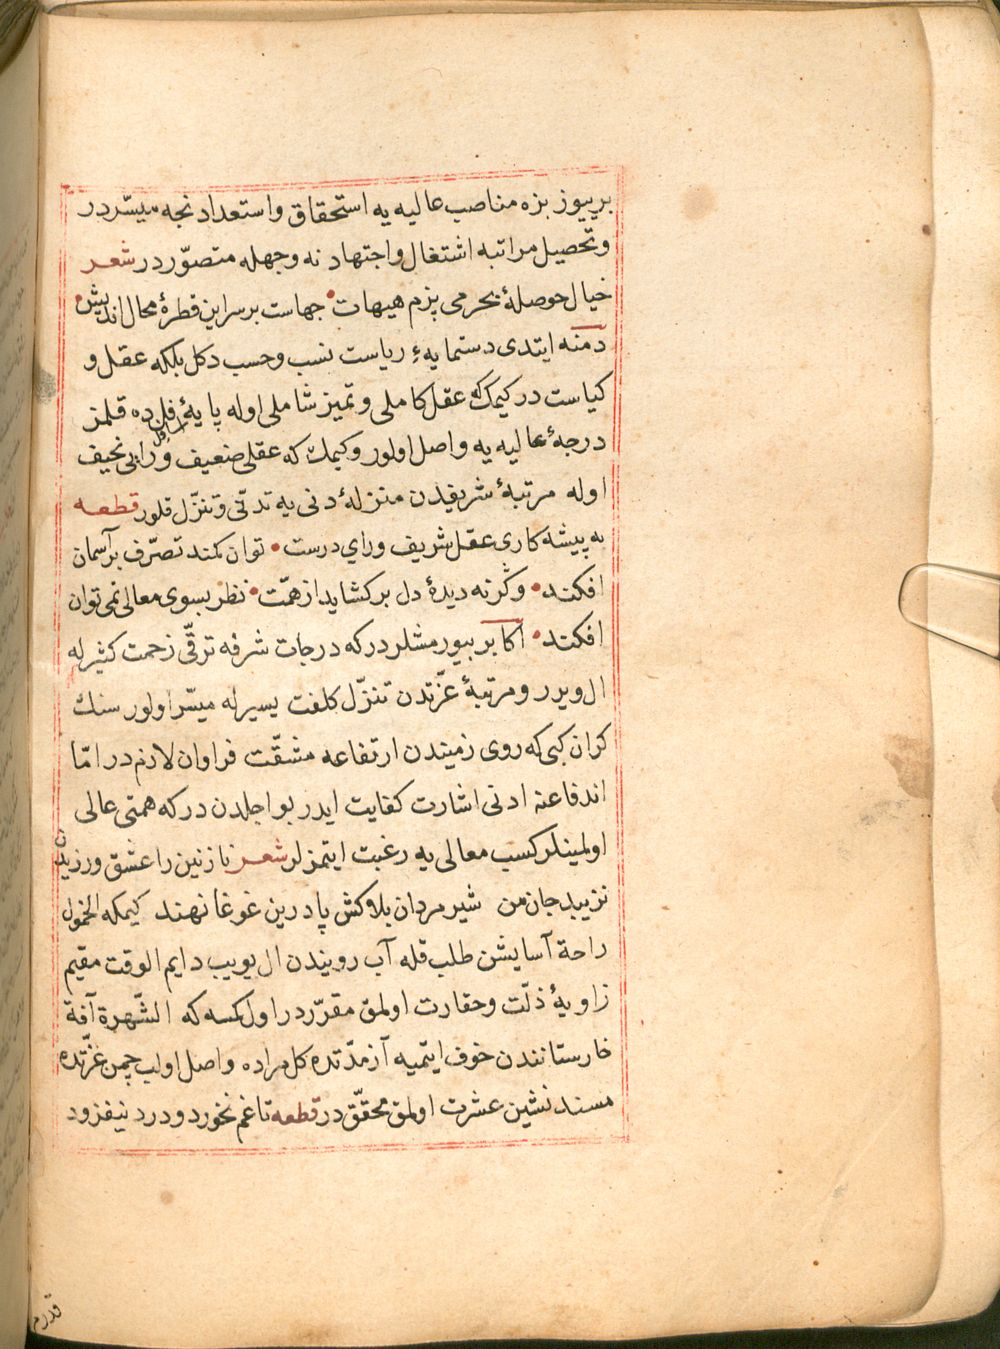 بریبوز بزه مناصب عالیه یه استحقاق و استعداد نجه میسّردر
و تحصیل مراتبه اشتغال و اجتهاد نه وجهله متصوّردر شعر
خیال حوصلهٔ بحر می پزم هیهات • جهاست بر سر این قطرهٔ محال اندیش •
دمنه ایتدی دستمایهٔ ریاست نسب و حسب دکل بلکه عقل و
کیاست در کیمک که عقل کاملی و تمیز شاملی اوله پایهٔ ده قلمز
درجهٔ عالیه یه واصل اولور و کیمک که عقلی ضعیف و رایی نحیف
اوله مرتبهٔ شریفدن منزلهٔ دنی یه تدنّی و تنزّل قلور قطعه
به پیشه کاری عقل شریف و رای درست • توان کمند تصرّف بر آسمان
افکند • وگرنه دیدهٔ دل برکشاید از همّت • نظر بسوی معالی نمی توان
افکند • اکابر بیورمشلردرکه درجات شرفه ترقّی زحمت کثیرله
ال ویرر و مرتبهٔ عزّتدن تنزّل کلفت یسیرله میسّر اولور سنك
کران کبی که روی زمیندن ارتفاعه مشقّت فراوان لازم در امّا
اندفاعنه ادنی اشارت کفایت ایدر بو اجلدن درکه همتی عالی
اولمینلر کسب معالی یه رغبت ایتمزلر شعر نازنین را عشق ورزیدن
نزیبد جان من شیر مردان بلاکش پا درین غوغا نهند کیمکه الخمول
راحة آسایشن طلب قله آب رویندن ال یویب دایم الوقت مقیم
زاویهٔ ذلّت و حقارت اولمق مقرّردر اول کسه که الشّهرة آفة
خارستانندن خوف ایتمیه آز مدّتده کل مراده واصل اولب چمن عزّتده
مسند نشین عشرت اولمق محقّق در قطعه تا غم نخورد و درد نیفزود